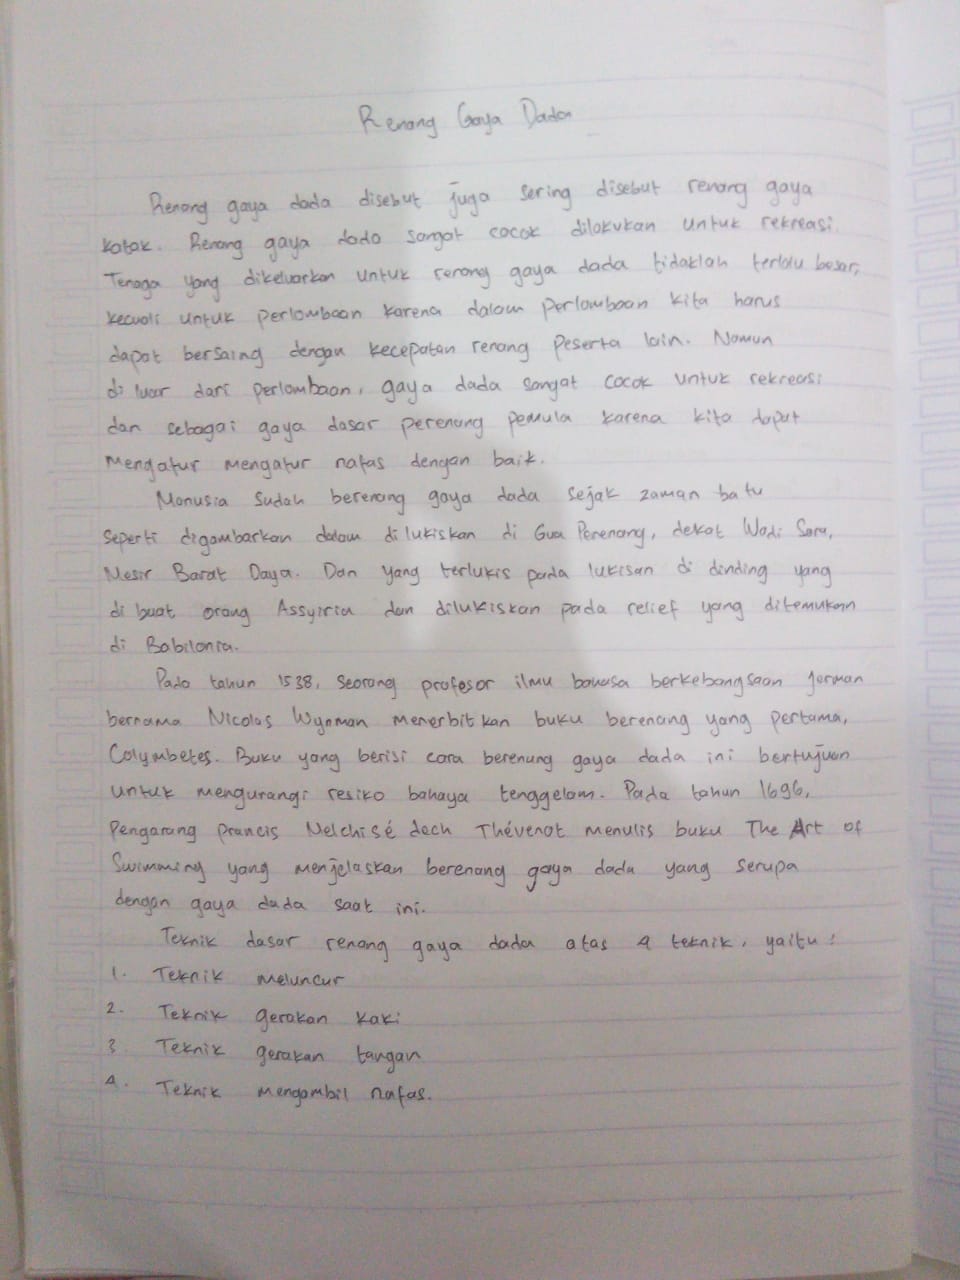 Renang Gaya Dada
Renang gaya dada disebut juga sering disebut renang gaya
katak. Renang gaya dada sangat cocok dilakukan untuk rekreasi.
Tenaga yang dikeluarkan untuk renang gaya dada tidaklah terlalu besar,
kecuali untuk perlombaan karena dalam perlombaan kita harus
dapat bersaing dengan kecepatan renang peserta lain. Namun
di luar dari perlombaan, gaya dada sangat cocok untuk rekreasi
dan sebagai gaya dasar perenang pemula karena kita dapat
mengatur mengatur nafas dengan baik.
Manusia sudah berenang gaya dada sejak zaman batu
seperti digambarkan dalam dilukiskan di Gua Perenang, dekat Wadi Sora,
Mesir Barat Daya. Dan yang terlukis pada lukisan di dinding yang
di buat orang Assyiria dan dilukiskan pada relief yang ditemukan
di Babilonia.
Pada tahun 1538, seorang profesor ilmu bahasa berkebangsaan Jerman
bernama Nicolas Wynman menerbitkan buku berenang yang pertama,
Colymbetes. Buku yang berisi cara berenang gaya dada ini bertujuan
untuk mengurangi resiko bahaya tenggelam. Pada tahun 1696,
Pengarang prancis Melchisé dech Thévenot menulis buku The Art of
Swimming yang menjelaskan berenang gaya dada yang serupa
dengan gaya dada saat ini.
Teknik dasar renang gaya dada atas 4 teknik, yaitu:
1. Teknik meluncur
2. Teknik gerakan kaki
3. Teknik gerakan tangan
4. Teknik mengambil nafas.